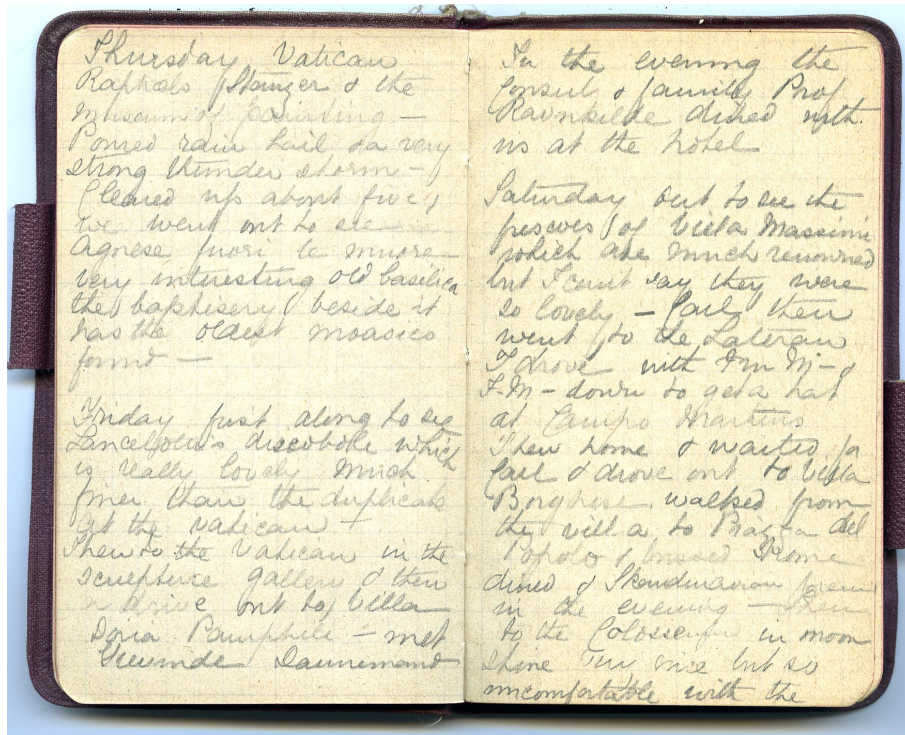 Thursday Vatican
Raphaels Stanzer & the
Museum of Painting —
Poured rain hail & a very
strong thunder storm —
Cleared up about five &
we went out to see
Agnese fuori le mura
very interesting old basilica
the baptisery beside it
has the oldest moasics
found —
Friday first along to see
Lancelotti's discobole which
is really lovely much
finer than the duplicate
at the Vatican —
Then to the Vatican in the
sculpture gallery & then
a drive out to Villa
Doria Pamphili — met
In the evening the
Consul & family Prof
Ravnkilde dined with
us at the hotel
Saturday out to see the
frescoes of Villa Massimi
which are much renowned
but I can't say they were
so lovely — Carl then
went to the Lateran
I drove with &
down to get a hat
at Campo Martius
Then home & waited for
Carl & drove out to Villa
Borghese walked from
the villa to Piazza del
Popolo & home
dined & Skandinavian
in the evening — Then
to the Colosseum in moon
shine very nice but so
uncomfortable with the